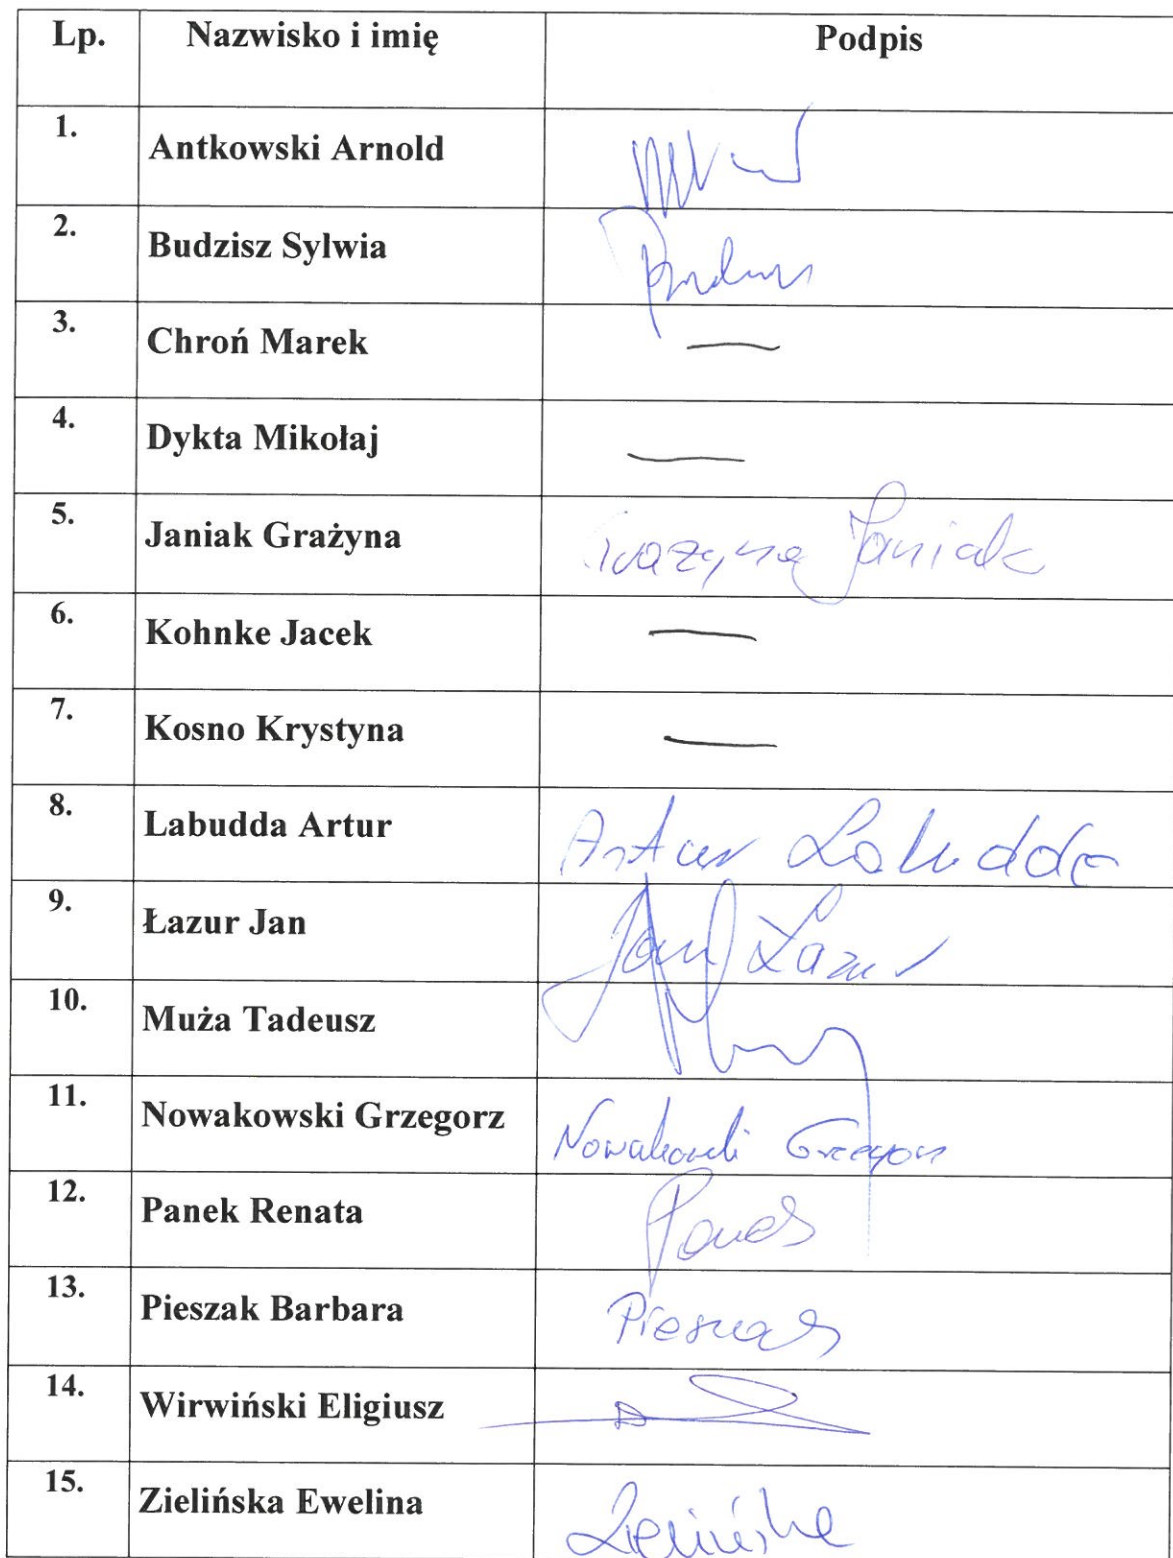 Lp. Nazwisko i imię Podpis
1. Antkowski Arnold
2. Budzisz Sylwia
3. Chroń Marek —
4. Dykta Mikołaj —
5. Janiak Grażyna Grażyna Janiak
6. Kohnke Jacek —
7. Kosno Krystyna —
8. Labudda Artur Artur Labudda
9. Łazur Jan Jan Łazur
10. Muża Tadeusz
11. Nowakowski Grzegorz Nowakowski Grzegorz
12. Panek Renata Panek
13. Pieszak Barbara Pieszak
14. Wirwiński Eligiusz
15. Zielińska Ewelina Zielińska